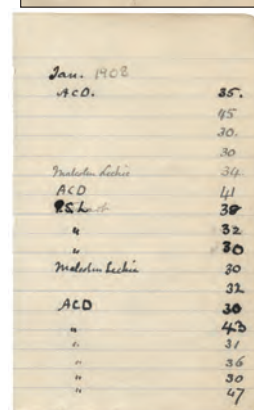 Jan. 1908
ACD. 35.
45
30.
30
Malcolm Leckie 34
ACD 41
38
" 32
" 30
Malcolm Leckie 30
32
ACD 30
" 43
" 31
" 36
" 30
" 47